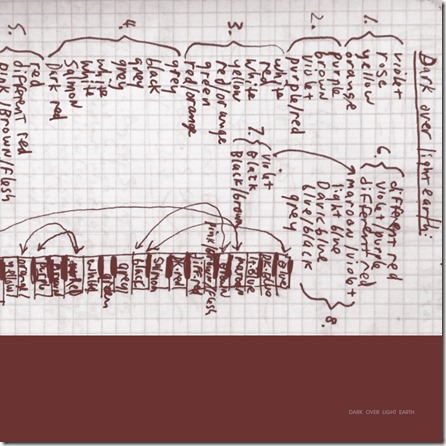 Dark over light earth
1. violet
rose
yellow
orange
2. purple
brown
violet
purple/red
3. white
red
white
yellow
red/orange
green
red/orange
4. grey
black
grey
grey
white
white
Salmon
Dark red
5. red
different red
pink/Brown/Flesh
6. different red
violet/purple
different red
maroon/violet
light blue
Dark blue
blue/black
grey
7. violet
Black
Black/brown
8.
pink/brown/flesh
blue
Salmon
black
grey
green
white
yellow
DARK OVER LIGHT EARTH